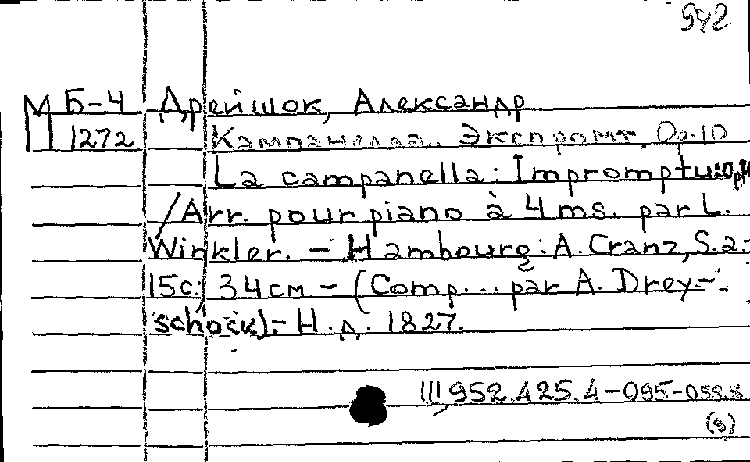 942
М Б-4 Дрейшок, Александр
1272 Кампанелла. Экспромт. Op.10
La campanella: Impromptu: Op.10
/Arr. pour piano à 4 ms. par L.
Winkler. - Hambourg: A. Cranz, S.a.-
15с.; 34см - (Comp... par A. Drey-
schock).- Н.д. 1827.
Ш 952.425.4-095-059.8
(3)